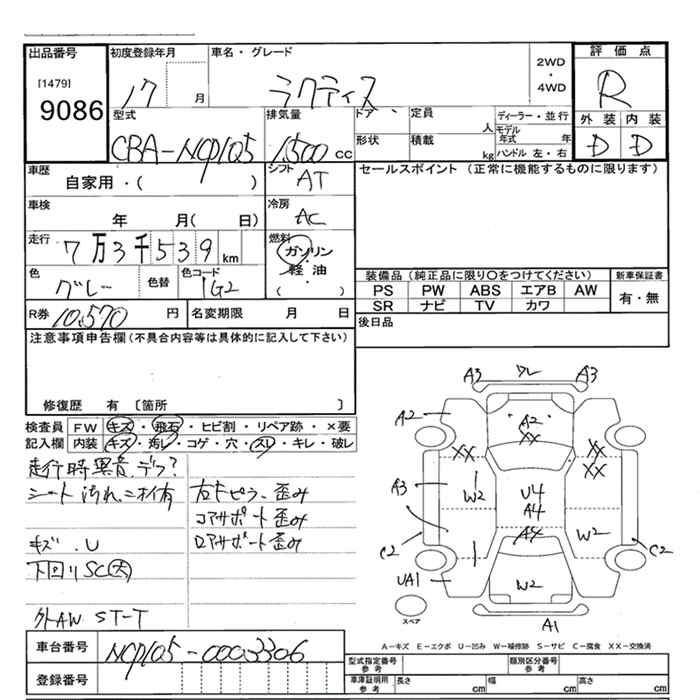 出品番号
[1479]
9086
初度登録年月
17 月
車名・グレード
ラクティス
2WD
・
4WD
評価点
R
外装 内装
D D
型式
CBA-NCP105
排気量
1500 cc
ドア・
形状
定員
人
積載
kg
ディーラー・並行
モデル
年式 年
ハンドル 左・右
車歴
自家用・( )
シフト
AT
セールスポイント (正常に機能するものに限ります)
車検
年 月( 日)
冷房
AC
走行
7万3千539 km
燃料
ガソリン
軽・油
( )
色
グレー
色替
色コード
1G2
装備品 (純正品に限り○をつけてください)
新車保証書
PS PW ABS エアB AW
SR ナビ TV カワ
有・無
R券 10,570 円
名変期限 月 日
後日品
注意事項申告欄 (不具合内容等は具体的に記入して下さい)
修復歴 有 〔箇所 〕
検査員
記入欄
FW キズ・飛石・ヒビ割・リペア跡・×要
内装 キズ・汚レ・コゲ・穴・スレ・キレ・破レ
走行時異音、デフ?
シート汚れ、ニオイ有
キズ.U
下回りSC(大)
外AW ST-T
右Fピラー歪み
コアサポート歪み
ロアサポート歪み
A3 ワレ A3
A2 A2
XX XX
XX XX
A3 W2 U4
A4
A4 W2
C2 C2
UA1 W2
スペア
A1
A-キズ E-エクボ U-凹み W-補修跡 S-サビ C-腐食 XX-交換済
車台番号
NCP105-0003306
登録番号
型式指定番号
参考
類別区分番号
参考
車庫証明用
参考
長さ cm
幅 cm
高さ cm